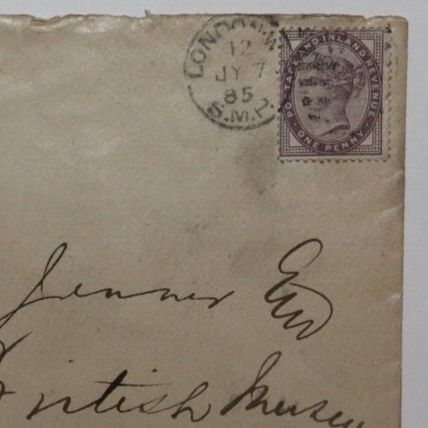 LONDON·W
12
JY 7
85
S.M.P.
POSTAGE AND INLAND REVENUE
ONE PENNY
Jenner Esq
British Museu